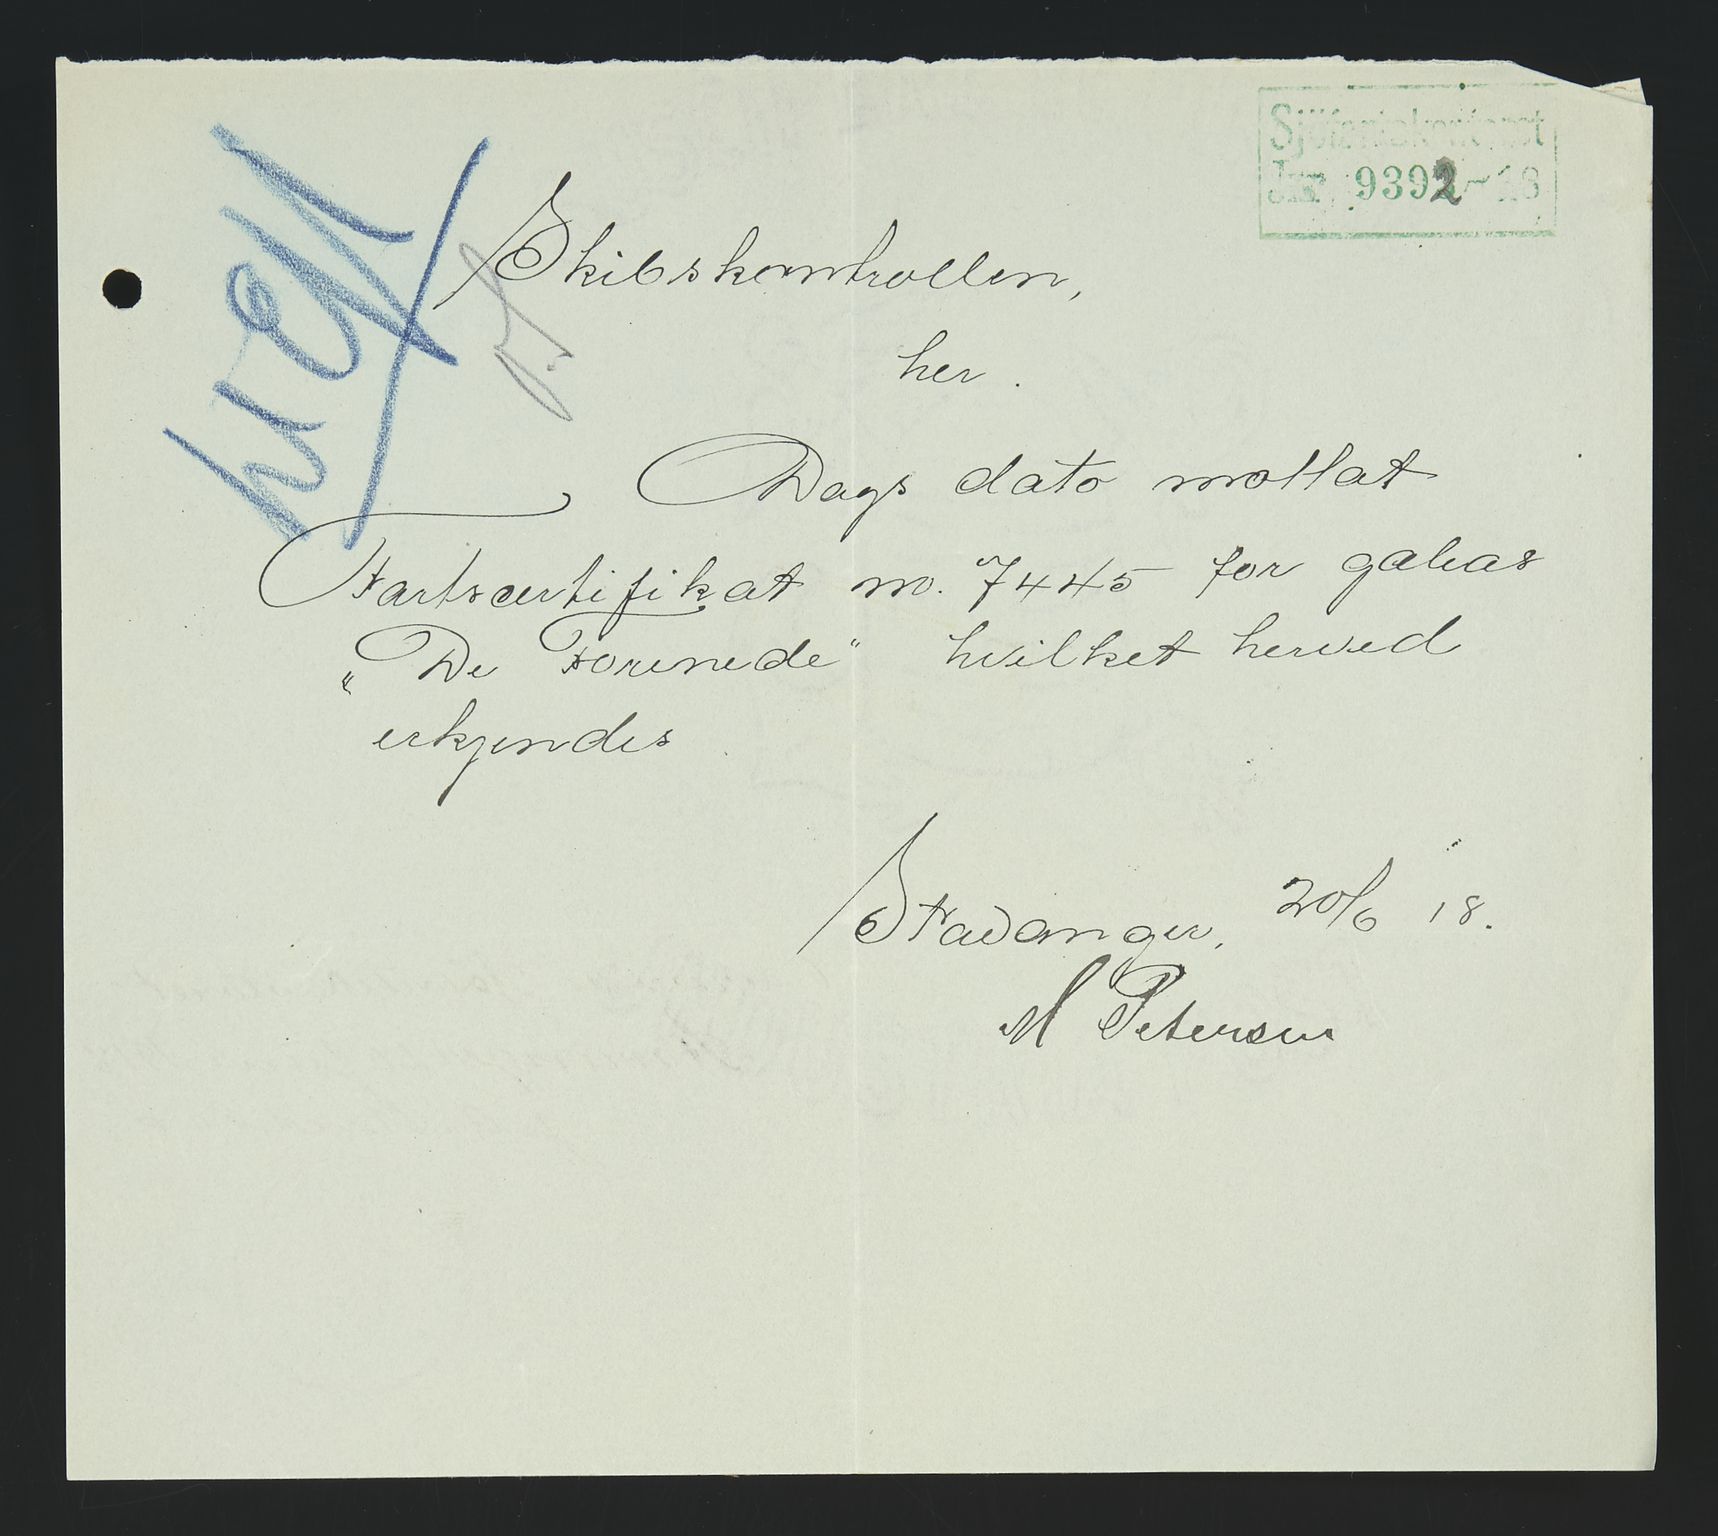 Sjöfartskontoret
Jnr. 9392 - 18
Skibskontrollen,
her.
Dags dato mottat
Fartscertifikat no. 7445 for galeas
„De Forenede" hvilket herved
erkjendes
Stavanger, 20/6 18.
M Petersen